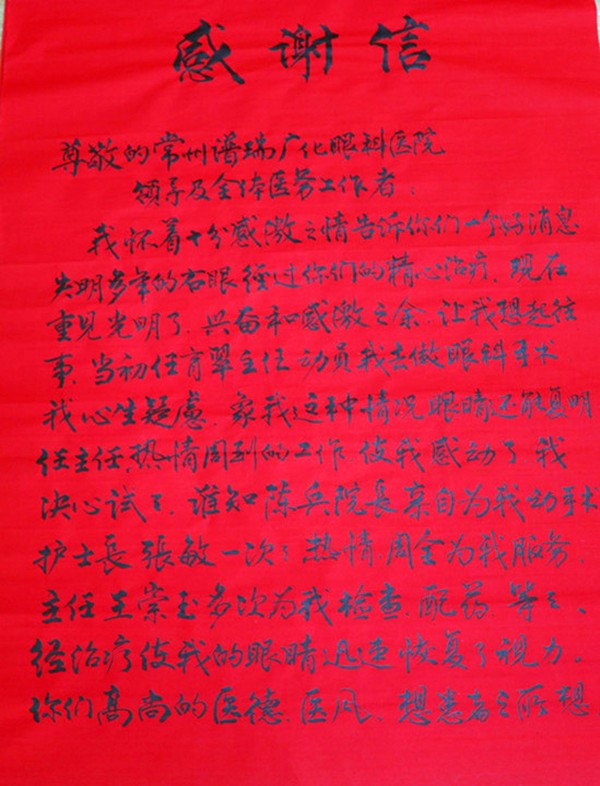 感谢信
尊敬的常州谱瑞广化眼科医院
领导及全体医务工作者.
我怀着十分感激之情告诉你们一个好消息
失明多年的右眼经过你们的精心治疗.现在
重见光明了.兴奋和感激之余.让我想起往
事.当初任育翠主任动员我去做眼科手术
我心生疑虑.象我这种情况眼睛还能复明
任主任热情周到的工作使我感动了我
决心试々.谁知陈兵院長亲自为我动手术
护士長張敏一次々热情.周全为我服务.
主任王崇玉多次为我检查.配药.等々、
经治疗使我的眼睛迅速恢复了视力。
你们高尚的医德.医风.想患者之所想